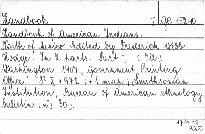 Handbook
Handbook of American Indians.
North of Mexico Edited by Frederick Webb
Hodge. In 2 parts. Part
Washington 1907, Government Printing
Office. 8° 972 1 map, Smithsonian
Institution, Bureau of American Ethnology,
Bulletin 30.